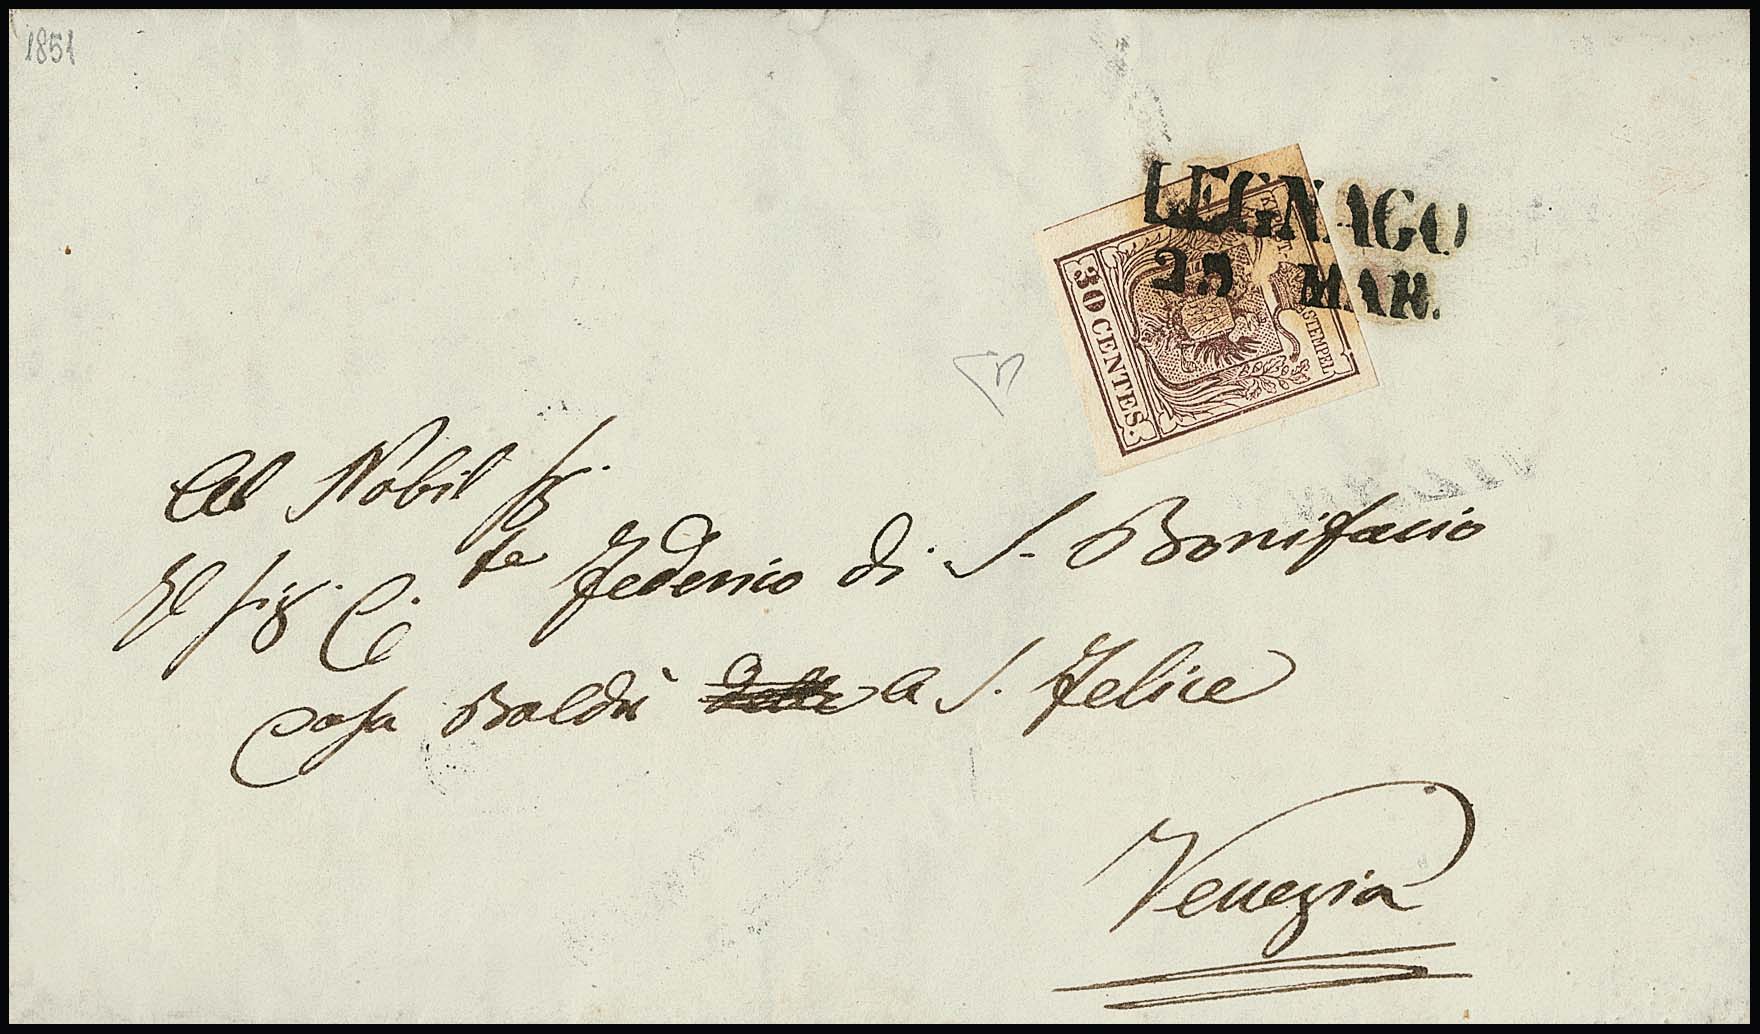 1851
LEGNAGO
25 MAR.
STEMPEL
30 CENTES.
Al Nobil Sig.
Il Sig. C.te Federico di S. Bonifacio
Casa Boldù a S. Felice
Venezia